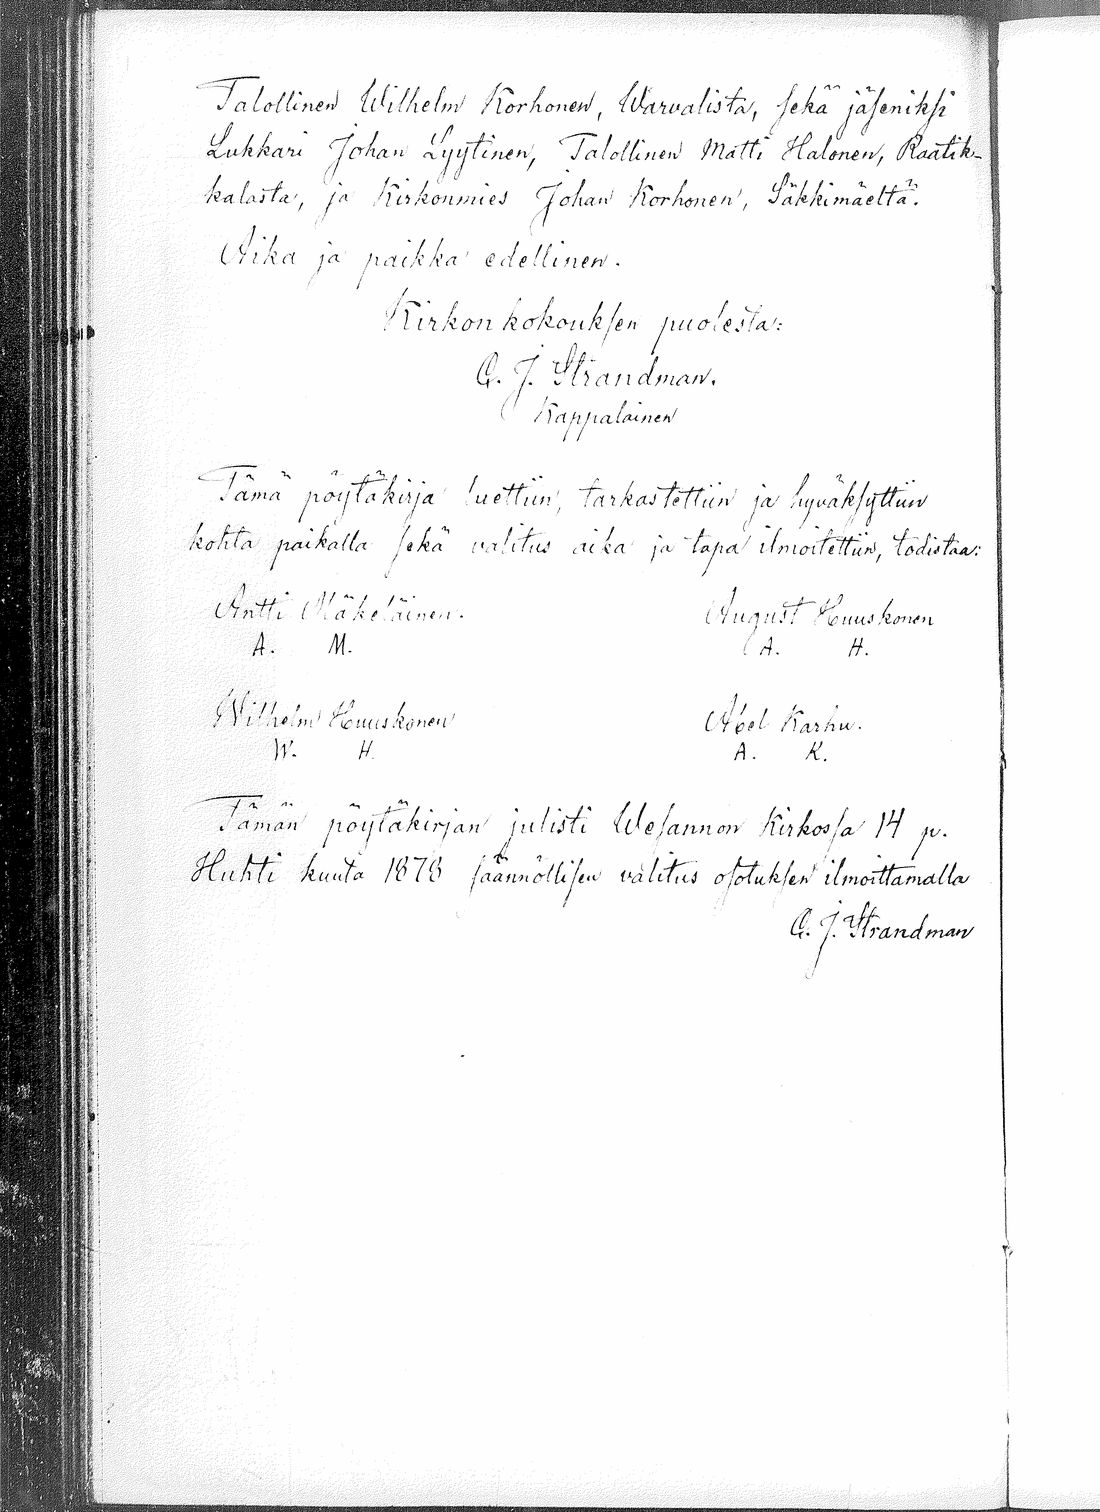 Talollinen Wilhelm Korhonen, Warvalista, sekä jäseniksi
Lukkari Johan Lyytinen, Talollinen Matti Halonen, Raatik-
kalasta, ja Kirkonmies Johan Korhonen, Säkkimäeltä.
Aika ja paikka edellinen.
Kirkonkokouksen puolesta:
C. J. Strandman.
Kappalainen
Tämä pöytäkirja luettiin, tarkastettiin ja hyväksyttiin
kohta paikalla sekä valitus aika ja tapa ilmoitettiin, todistaa:
Antti Mäkeläinen. August Huuskonen
A. M. A. H.
Wilhelm Huuskonen Abel Karhu.
W. H. A. K.
Tämän pöytäkirjan julisti Wesannon Kirkossa 14 p.
Huhti kuuta 1878 säännöllisen valitus osotuksen ilmoittamalla
C. J. Strandman